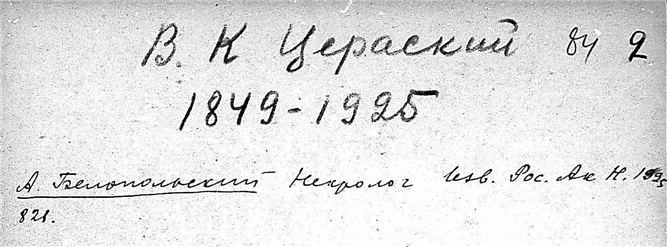 В. К Цераский 84 2
1849-1925
А. Белопольский Некролог Изв. Рос. Ак Н. 1925
821.